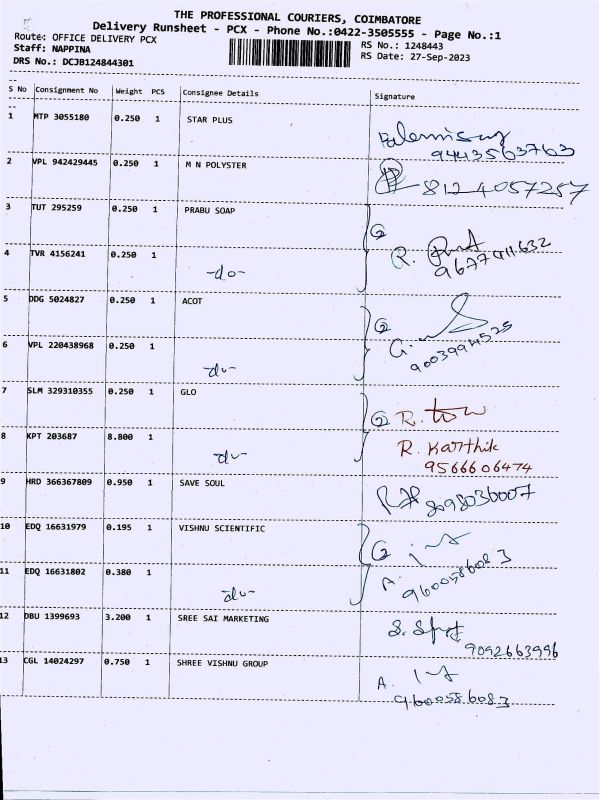 THE PROFESSIONAL COURIERS, COIMBATORE
Delivery Runsheet - PCX - Phone No.:0422-3505555 - Page No.:1
Route: OFFICE DELIVERY PCX
RS No.: 1248443
Staff: NAPPINA
RS Date: 27-Sep-2023
DRS No.: DCJB124844301
S No Consignment No Weight PCS Consignee Details Signature
1 MTP 3055180 0.250 1 STAR PLUS
9443563763
2 VPL 942429445 0.250 1 M N POLYSTER
8124057257
3 TUT 295259 0.250 1 PRABU SOAP
② R.
4 TVR 4156241 0.250 1
-do-
5 DDG 5024827 0.250 1 ACOT
② G.
9003994525
6 VPL 220438968 0.250 1
-do-
7 SLM 329310355 0.250 1 GLO
② R.
8 KPT 203687 8.800 1
-do- R. Karthik
9566606474
9 HRD 366367809 0.950 1 SAVE SOUL
8098036007
10 EDQ 16631979 0.195 1 VISHNU SCIENTIFIC
②
11 EDQ 16631802 0.380 1
-do- A. 9600586083
12 DBU 1399693 3.200 1 SREE SAI MARKETING
S.
9092663996
13 CGL 14024297 0.750 1 SHREE VISHNU GROUP
A.
9600586083